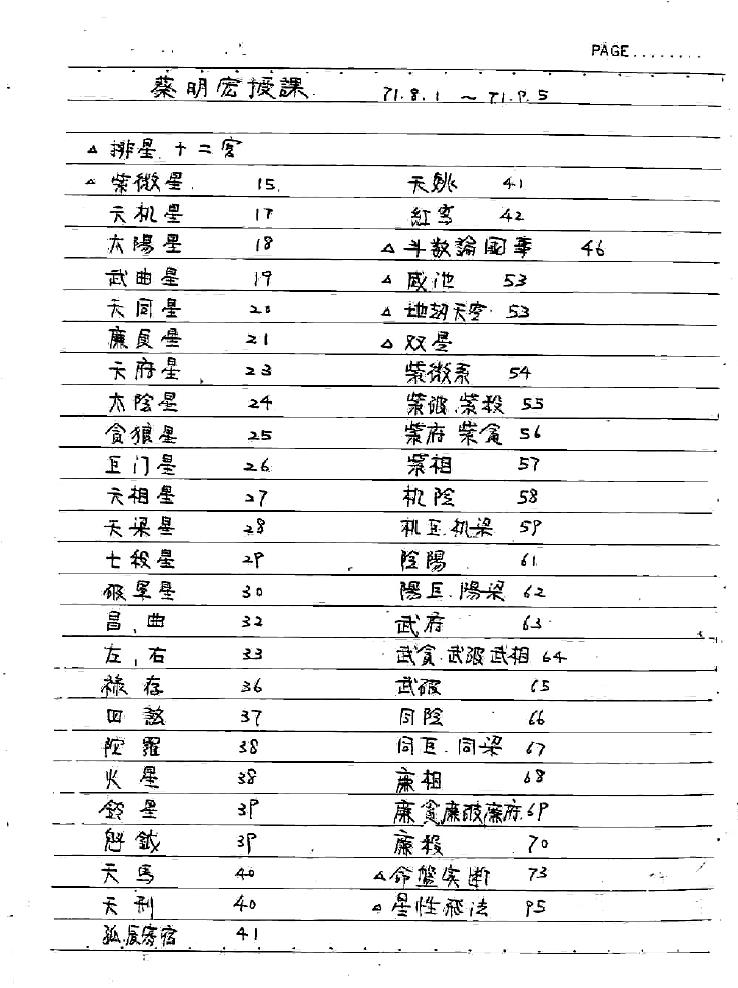 PAGE........
蔡明宏授課 71.8.1 ~ 71.9.5
△ 排星 十二宮
△ 紫微星 15
天机星 17
太陽星 18
武曲星 19
天同星 20
廉貞星 21
天府星 23
太陰星 24
貪狼星 25
巨门星 26
天相星 27
天梁星 28
七殺星 29
破軍星 30
昌、曲 32
左、右 33
祿存 36
四煞 37
陀羅 38
火星 38
鈴星 39
魁鉞 39
天馬 40
天刑 40
孤辰寡宿 41
天姚 41
紅鸞 42
△ 斗数論國事 46
△ 咸池 53
△ 地劫天空 53
△ 双星
紫微系 54
紫破.紫殺 55
紫府 紫貪 56
紫相 57
机陰 58
机巨.机梁 59
陰陽 61
陽巨.陽梁 62
武府 63
武貪.武破武相 64
武破 65
同陰 66
同巨.同梁 67
廉相 68
廉貪廉破廉府 69
廉殺 70
△ 命盤実断 73
△ 星性秘法 95